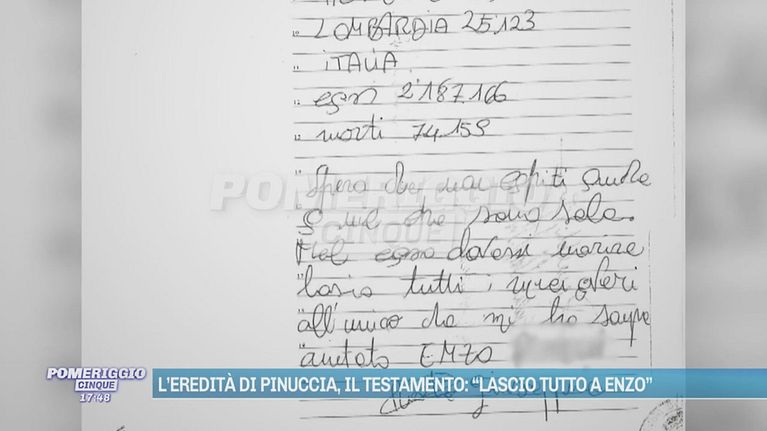 LOMBARDIA 25.123
ITALIA
casi 2'187'166
morti 74.159
Spero che non capiti anche
a me che sono sola.
Nel caso dovessi morire
lascio tutti i miei averi
all'unico che mi ha sempre
aiutato ENZO
POMERIGGIO
CINQUE
POMERIGGIO
CINQUE
17:48
L'EREDITÀ DI PINUCCIA, IL TESTAMENTO: “LASCIO TUTTO A ENZO”